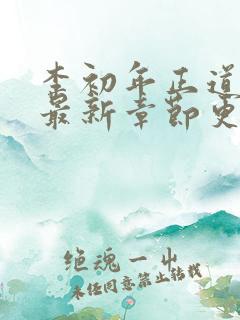 李初年正道
最新章节更
绝魂一出
未经同意禁止转载